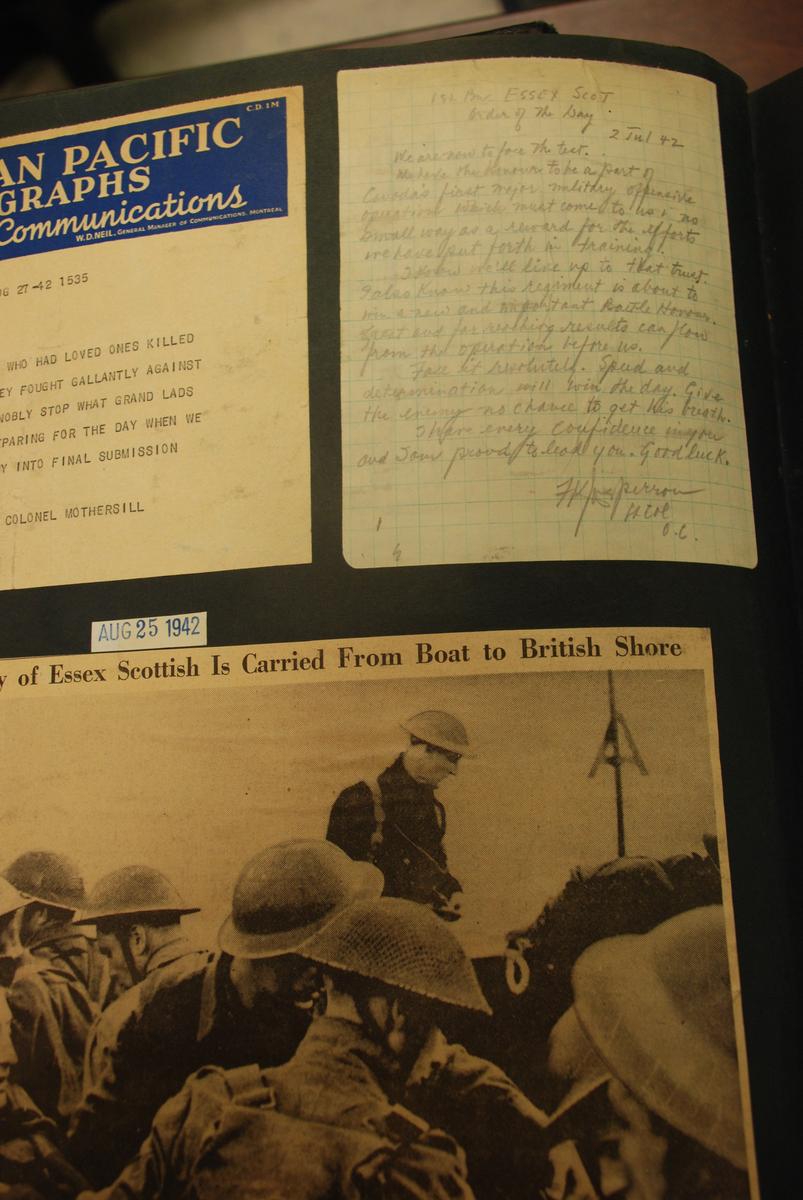 C.D. 1M
AN PACIFIC
GRAPHS
Communications
W.D. NEIL, GENERAL MANAGER OF COMMUNICATIONS, MONTREAL
G 27-42 1535
WHO HAD LOVED ONES KILLED
EY FOUGHT GALLANTLY AGAINST
NOBLY STOP WHAT GRAND LADS
PARING FOR THE DAY WHEN WE
Y INTO FINAL SUBMISSION
COLONEL MOTHERSILL
1st Bn ESSEX SCOT
Order of the Day.
2 Jul 42
We are now to face the test.
We have the honour to be a part of
Canada's first major military offensive
operation which must come to us in no
small way as a reward for the efforts
we have put forth in training.
I know we'll live up to that trust.
I also know this regiment is about to
win a new and important Battle Honour.
Great and far reaching results can flow
from the operation before us.
Face it resolutely. Speed and
determination will win the day. Give
the enemy no chance to get his breath.
I have every confidence in you
and I am proud to lead you. Good luck.
Lt Col
O.C.
AUG 25 1942
y of Essex Scottish Is Carried From Boat to British Shore